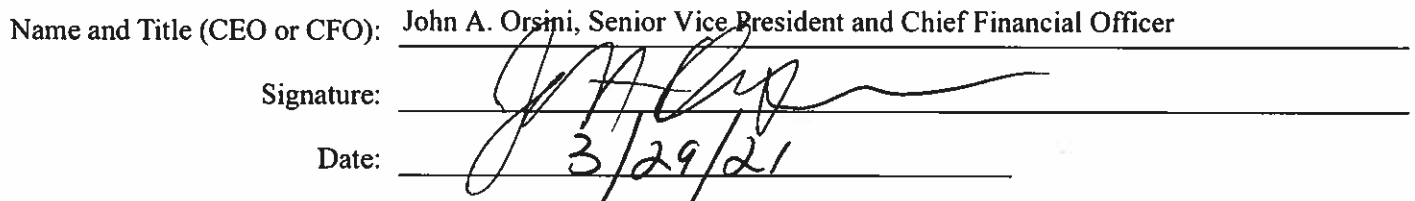 Name and Title (CEO or CFO): John A. Orsini, Senior Vice President and Chief Financial Officer
Signature:
Date: 3/29/21